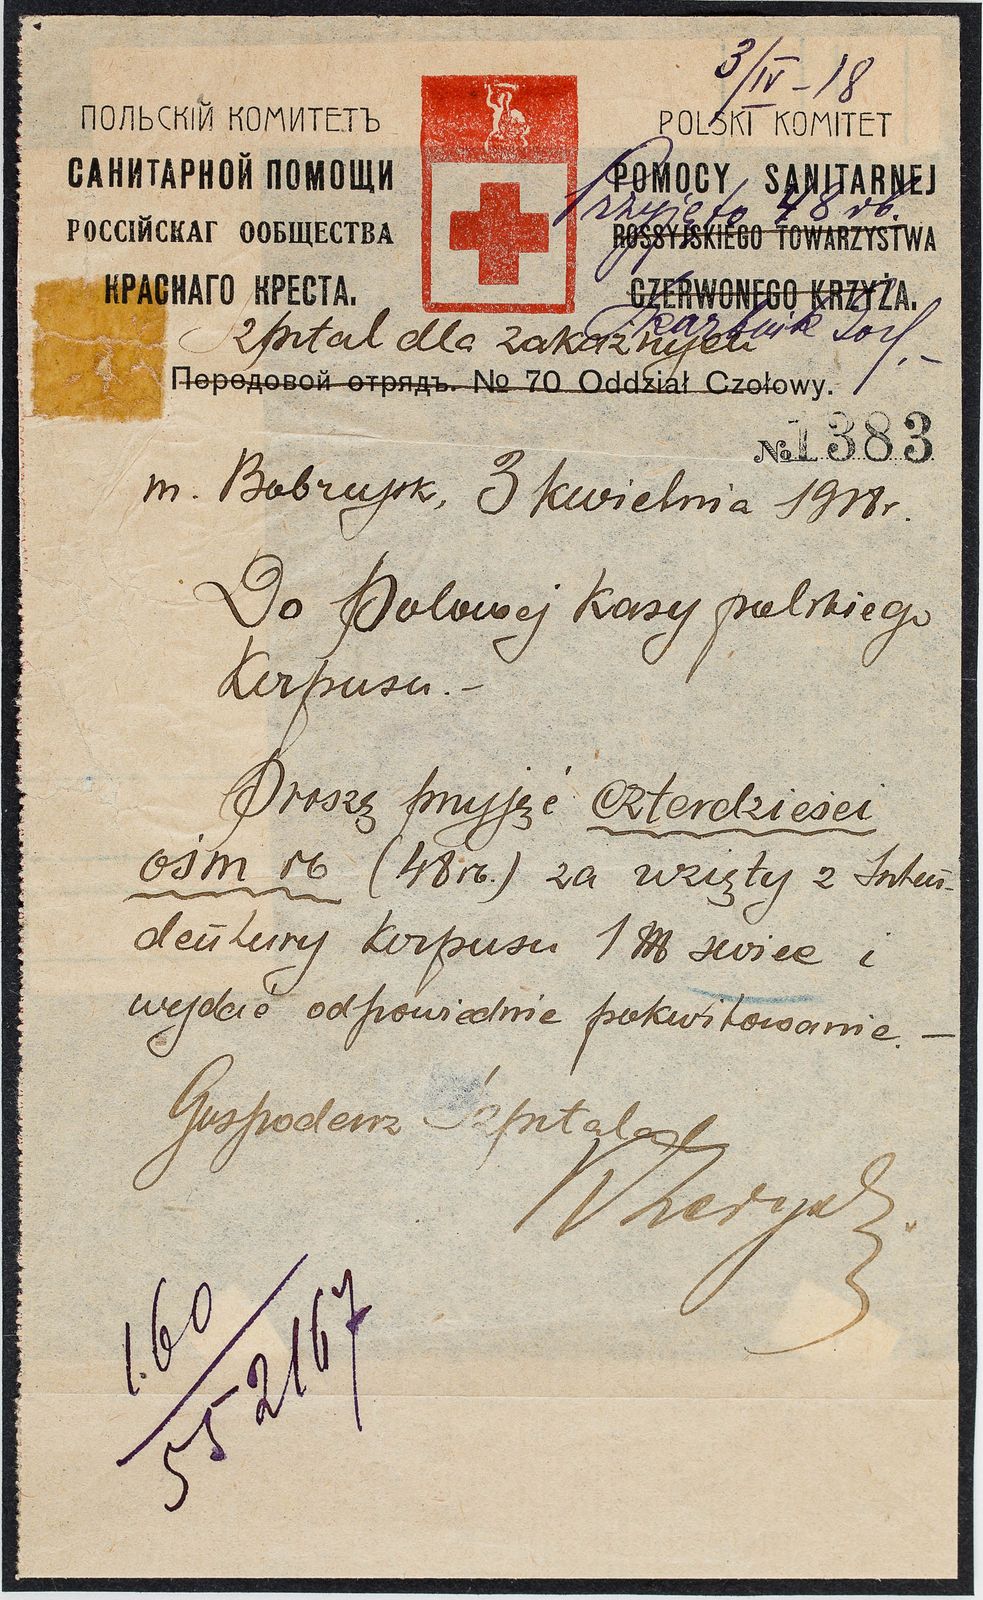 3/IV-18
ПОЛЬСКІЙ КОМИТЕТЪ
САНИТАРНОЙ ПОМОЩИ
РОССІЙСКАГ ООБЩЕСТВА
КРАСНАГО КРЕСТА.
POLSKI KOMITET
POMOCY SANITARNEJ
ROSSYJSKIEGO TOWARZYSTWA
CZERWONEGO KRZYŻA.
Przyjęto 48 rb.
Skarbnik
Szpital dla zakaźnych
Передовой отрядъ. № 70 Oddział Czołowy.
№ 1383
m. Bobrujsk, 3 kwietnia 1918 r.
Do Polowej Kasy polskiego
Korpusu.-
Proszę przyjąć czterdzieści
ośm rb (48 rb.) za wzięty z Inten-
dentury Korpusu 1 świec i
wydać odpowiednie pokwitowanie.-
Gospodarz Szpitala
1.60
552167